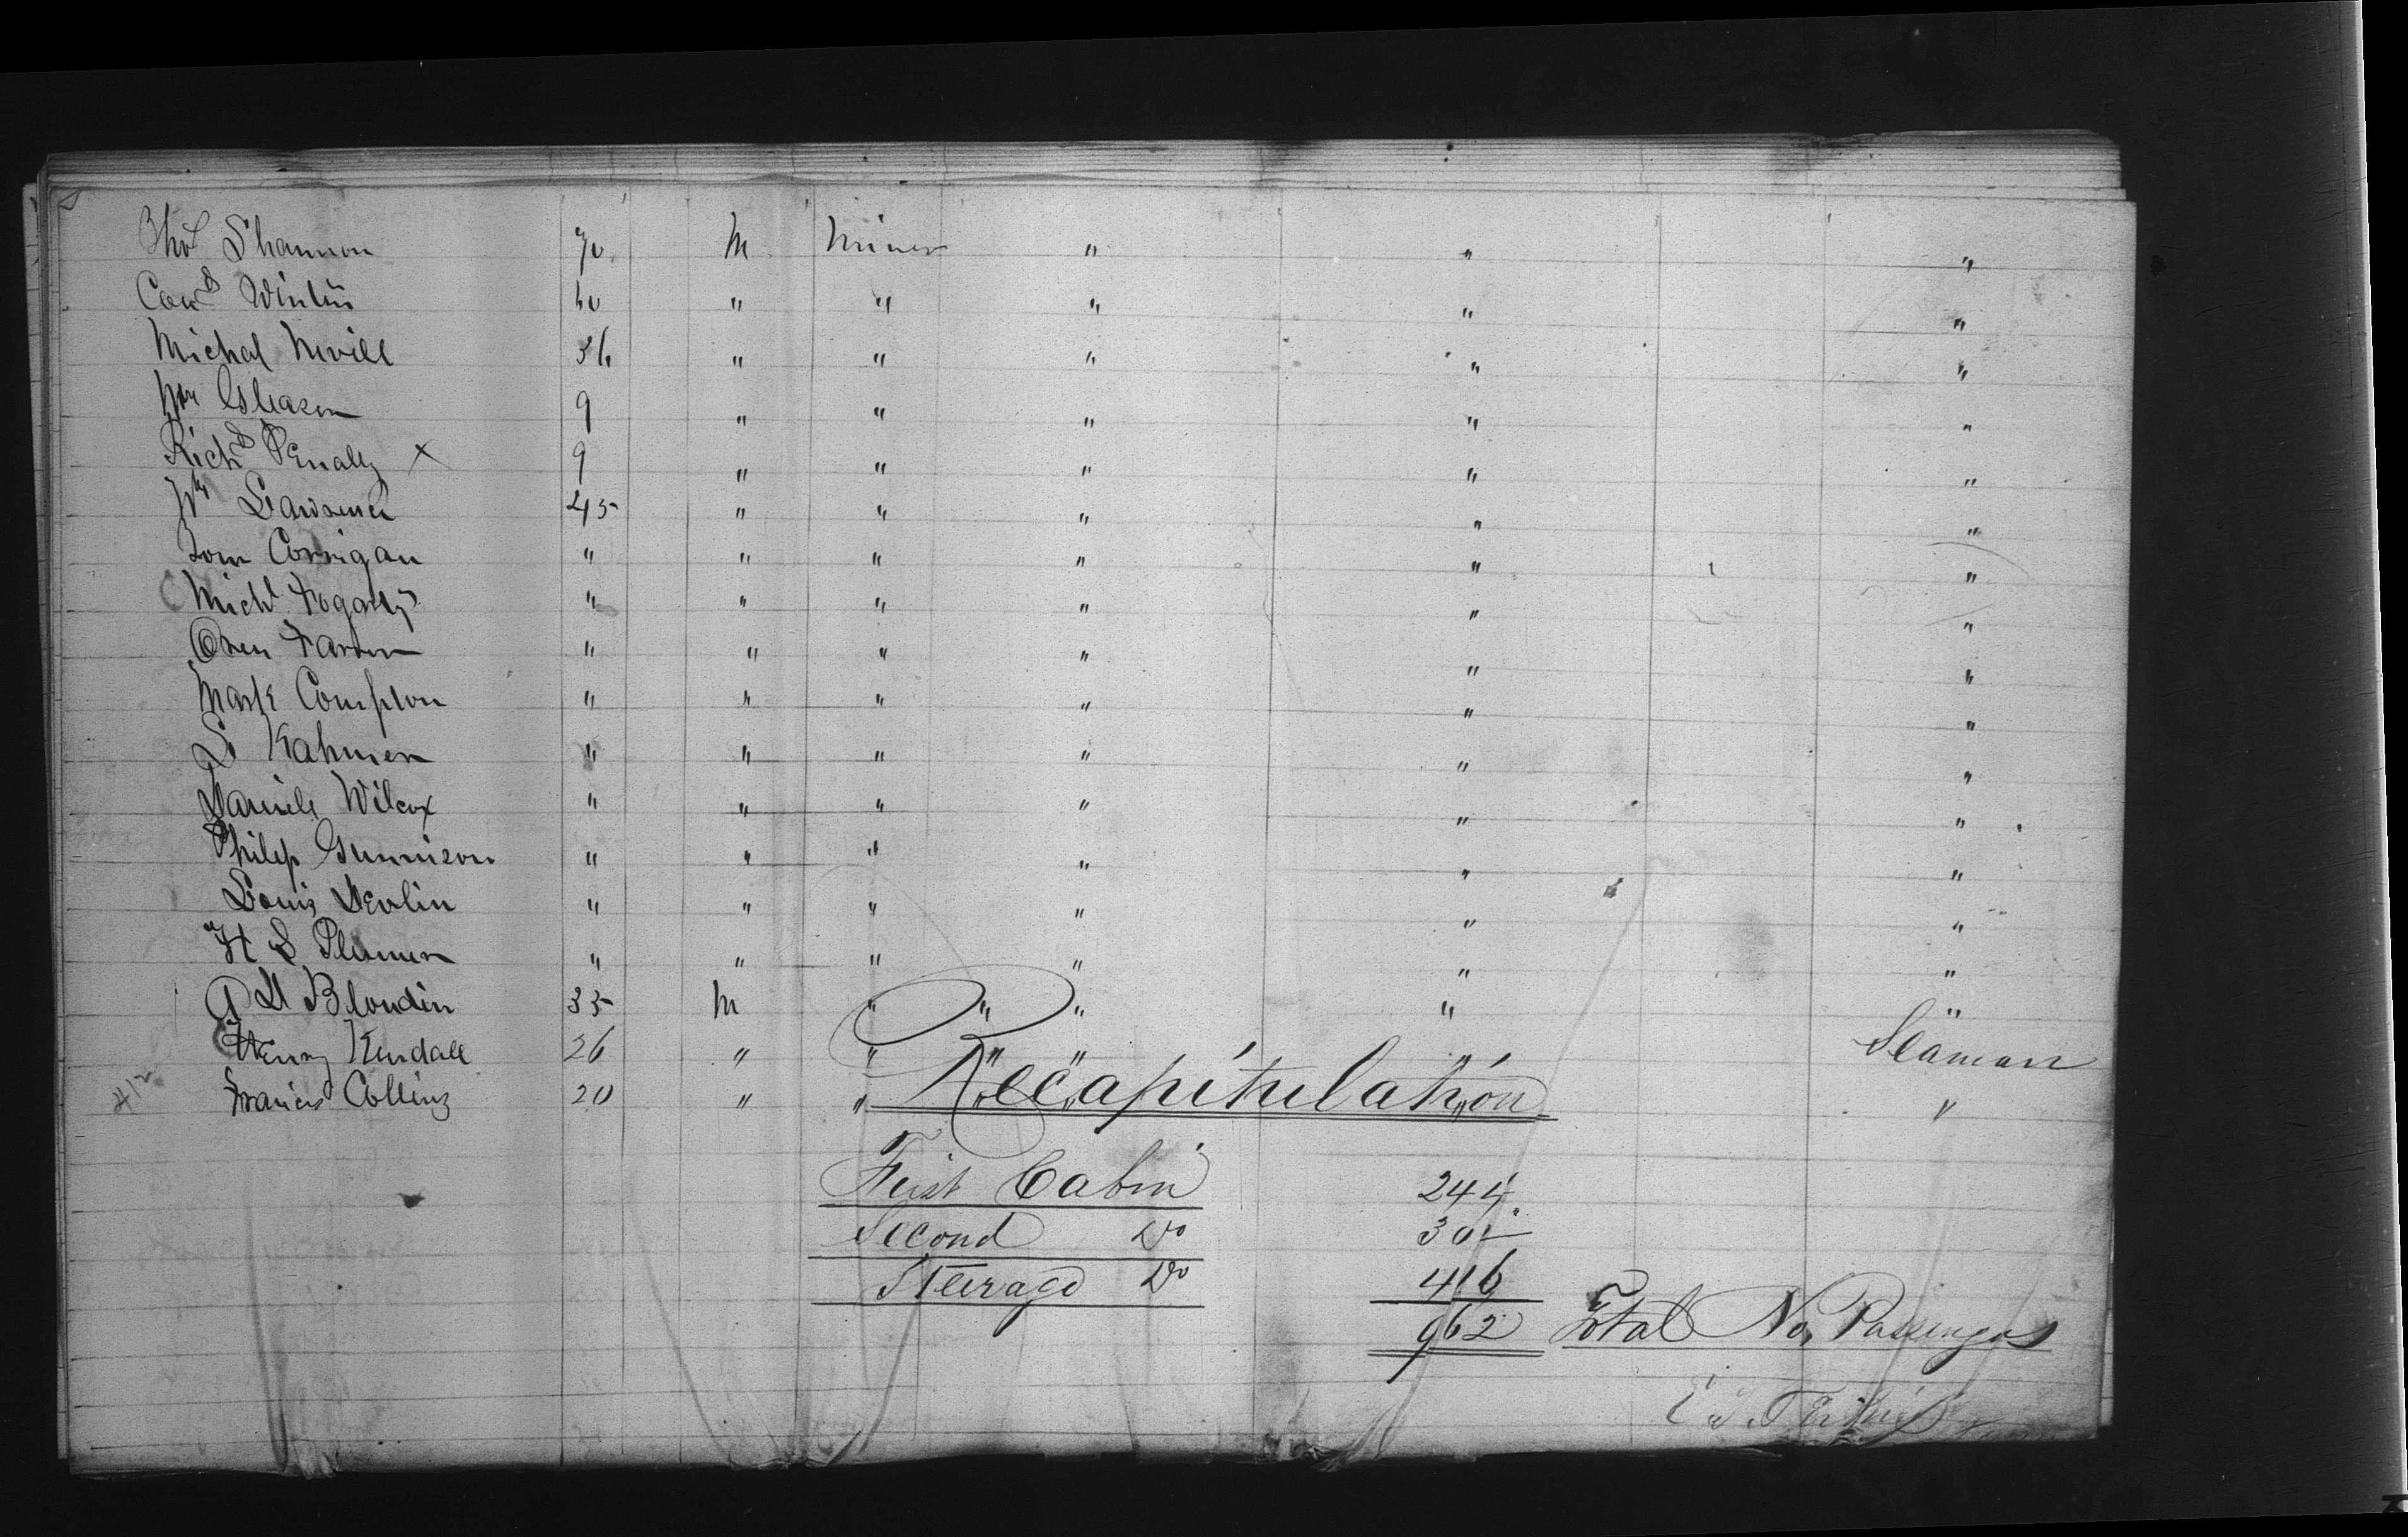 Thos Shannon 40 M Miner " " "
Edwd Winters 40 " " " " "
Michal Nevill 36 " " " " "
Wm Gleason 9 " " " " "
Richd Penally X 9 " " " " "
Wm Lawrence 45 " " " " "
Tom Corrigan " " " " " "
Michl Fogarty " " " " " "
Oren " " " " " "
Mark Compton " " " " " "
S " " " " " "
Daniel Wilcox " " " " " "
Philip Gunnison " " " " " "
Louis Devlin " " " " " "
H S Plummer " " " " " "
A D Blondin 35 M " " " " "
Henry Kendall 26 " " " " " Seaman
412 Francis Collins 20 " " " " "
Recapitulation
First Cabin 244
Second Do 302
Steerage Do 416
962 Total No. Passengers